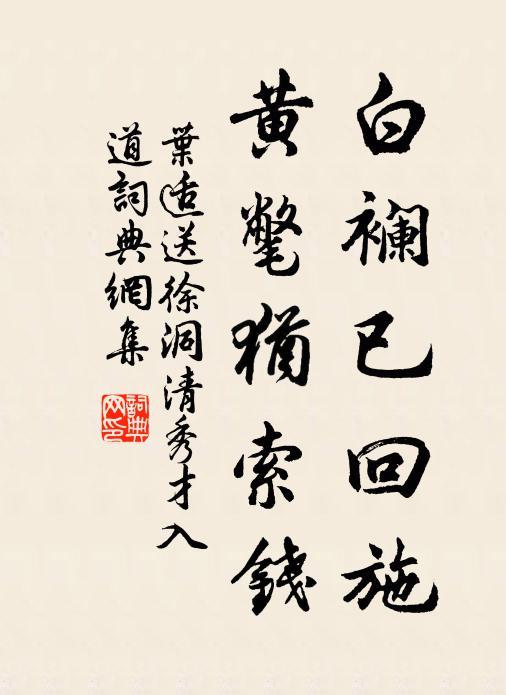 白襴已回施
黄氅猶索錢
葉适送徐洞清秀才入
道詞典網集
詞典网印